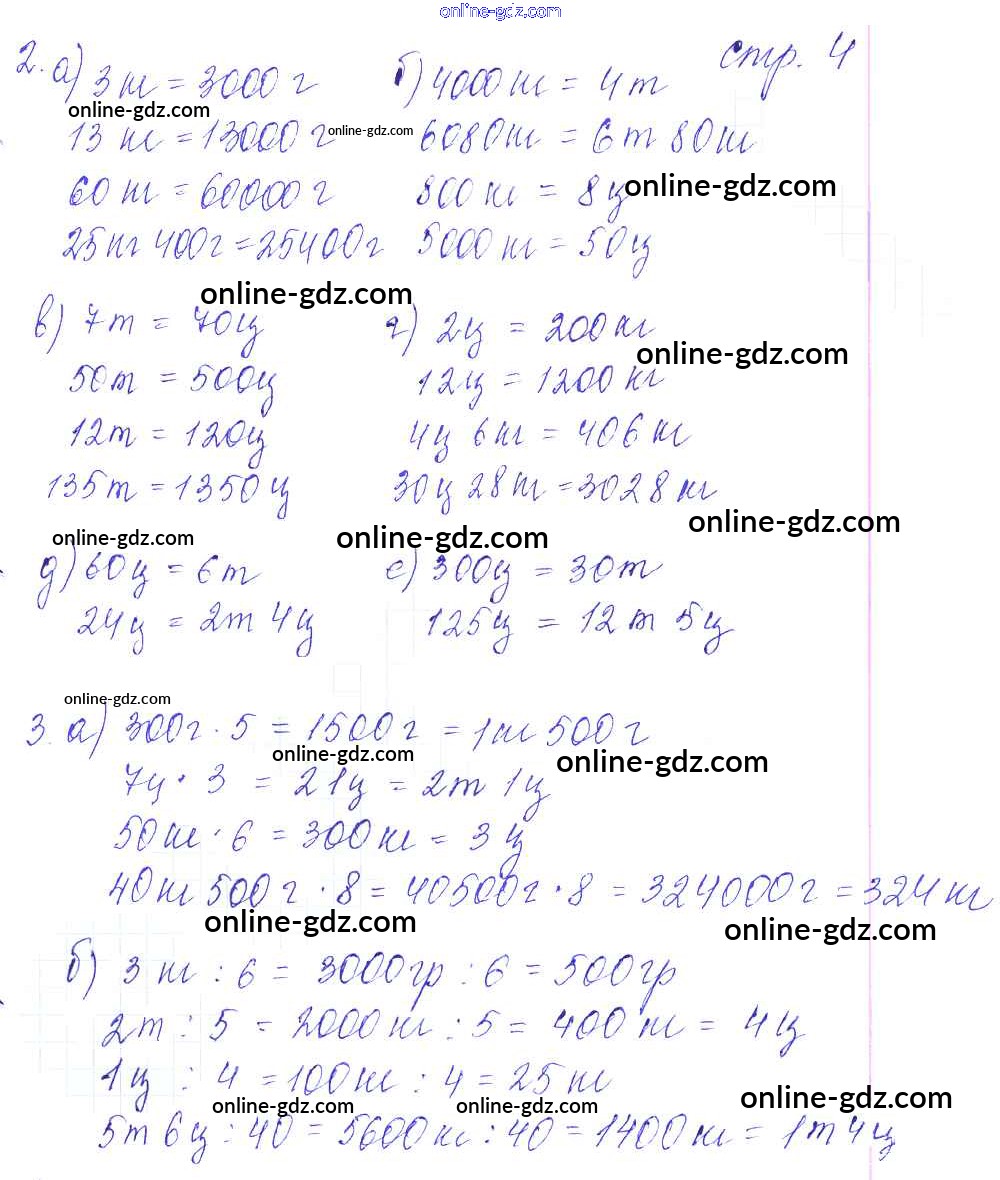 online-gdz.com
стр. 4
2. а) 3 кг = 3000 г б) 4000 кг = 4 т
online-gdz.com
13 кг = 13000 г online-gdz.com 6080 кг = 6 т 80 кг
60 кг = 60000 г 800 кг = 8 ц online-gdz.com
25 кг 400 г = 25400 г 5000 кг = 50 ц
online-gdz.com
в) 7 т = 70 ц г) 2 ц = 200 кг
online-gdz.com
50 т = 500 ц 12 ц = 1200 кг
12 т = 120 ц 4 ц 6 кг = 406 кг
135 т = 1350 ц 30 ц 28 кг = 3028 кг
online-gdz.com
online-gdz.com online-gdz.com
д) 60 ц = 6 т е) 300 ц = 30 т
24 ц = 2 т 4 ц 125 ц = 12 т 5 ц
online-gdz.com
3. а) 300 г · 5 = 1500 г = 1 кг 500 г
online-gdz.com online-gdz.com
7 ц · 3 = 21 ц = 2 т 1 ц
50 кг · 6 = 300 кг = 3 ц
40 кг 500 г · 8 = 40500 г · 8 = 324000 г = 324 кг
online-gdz.com online-gdz.com
б) 3 кг : 6 = 3000 гр : 6 = 500 гр
2 т : 5 = 2000 кг : 5 = 400 кг = 4 ц
1 ц : 4 = 100 кг : 4 = 25 кг
online-gdz.com online-gdz.com online-gdz.com
5 т 6 ц : 40 = 5600 кг : 40 = 1400 кг = 1 т 4 ц